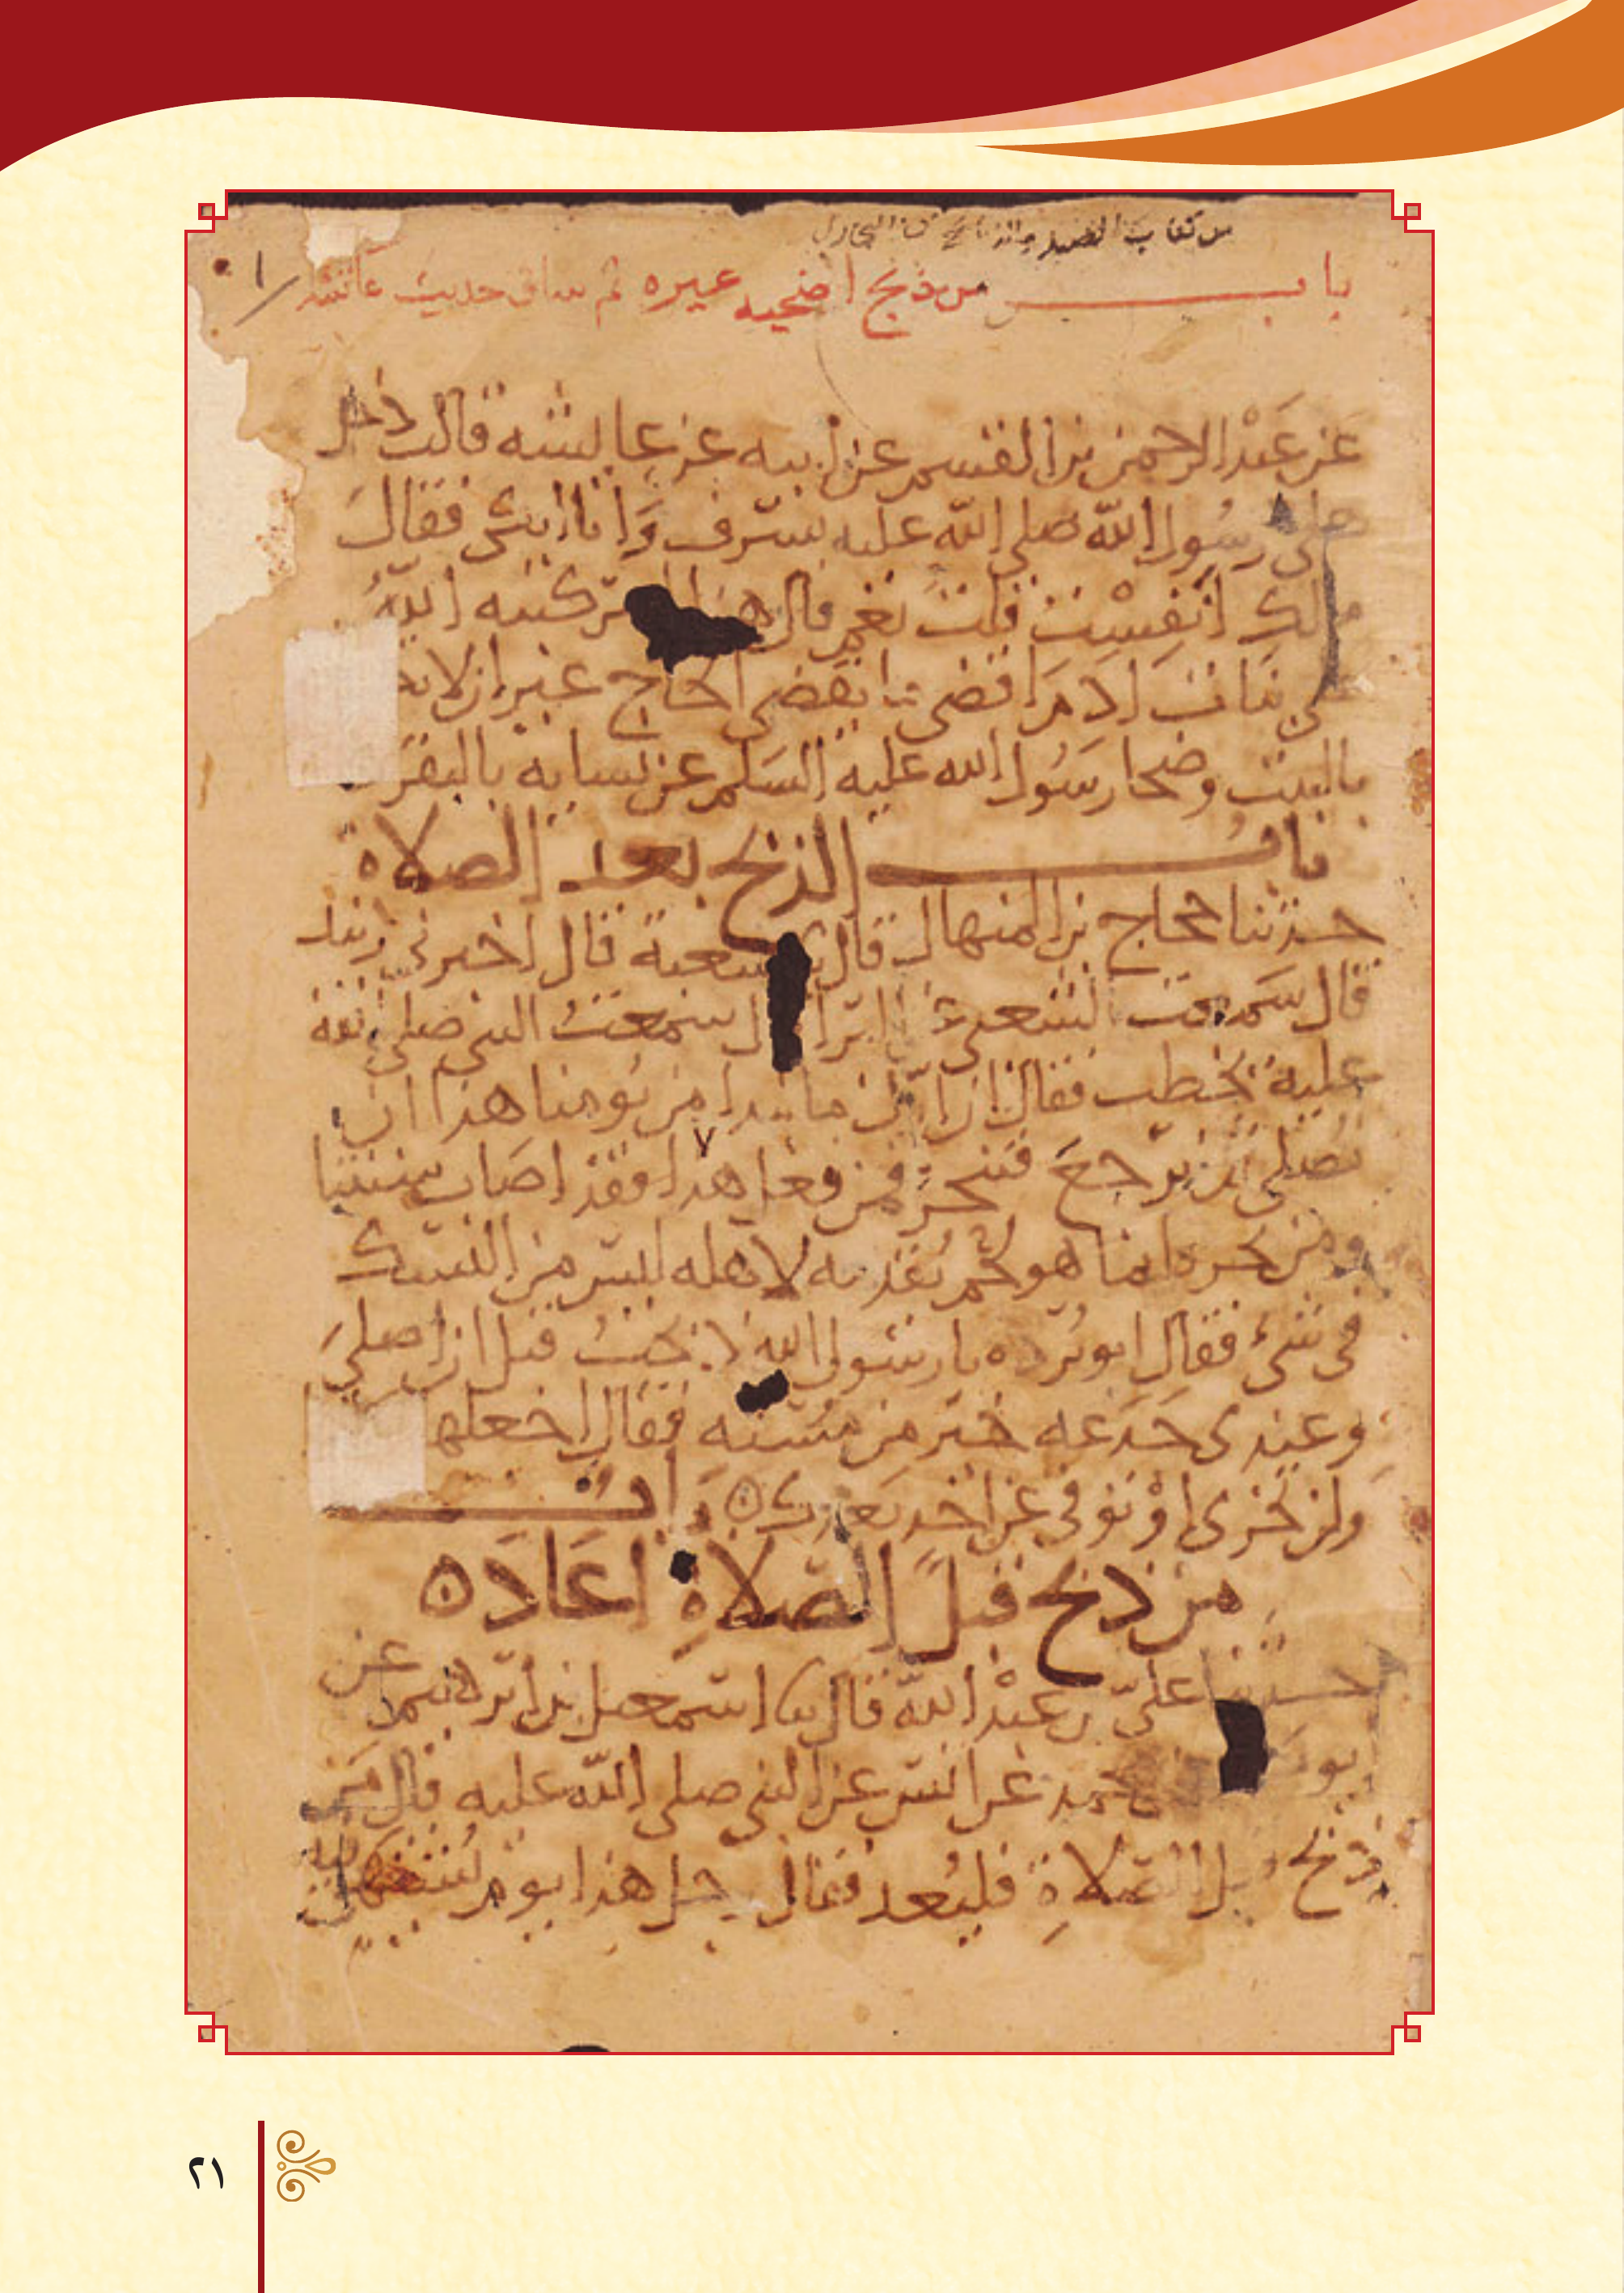 من كتاب
باب من ذبح اضحية غيره ثم ساق حديث عائشة
عن عبد الرحمن بن القسم عن ابيه عن عايشه قالت دخل
على رسول الله صلى الله عليه بسرف وانا ابكى فقال
مالك انفست قلت نعم قال هذا امر كتبه الله
على بنات ادم اقضى ما يقضى الحاج غير ان لا
بالبيت وضحا رسول الله عليه السلم عن نسايه بالبقر
باب الذبح بعد الصلاة
حدثنا حجاج بن المنهال قال شعبة قال اخبرنى زبيد
قال سمعت الشعبى عن البرا قال سمعت النبى صلى الله
عليه يخطب فقال ان اول ما نبدا من يومنا هذا ان
نصلى ثم نرجع فننحر فمن فعل هذا فقد اصاب سنتنا
ومن نحر فانما هو لحم يقدمه لاهله ليس من النسك
فى شىء فقال ابو برده يا رسول الله ذبحت قبل ان اصلى
وعندى جذعه خير من مسنه فقال اجعلها
ولن تجزى او توفى عن احد بعدك باب
من ذبح قبل الصلاة اعاد
حدثنا على بن عبد الله قال اسمعيل بن ابرهيم عن
ايوب عن محمد عن انس عن النبى صلى الله عليه قال من
ذبح قبل الصلاة فليعد فقال رجل هذا يوم يشتهى فيه
٢١